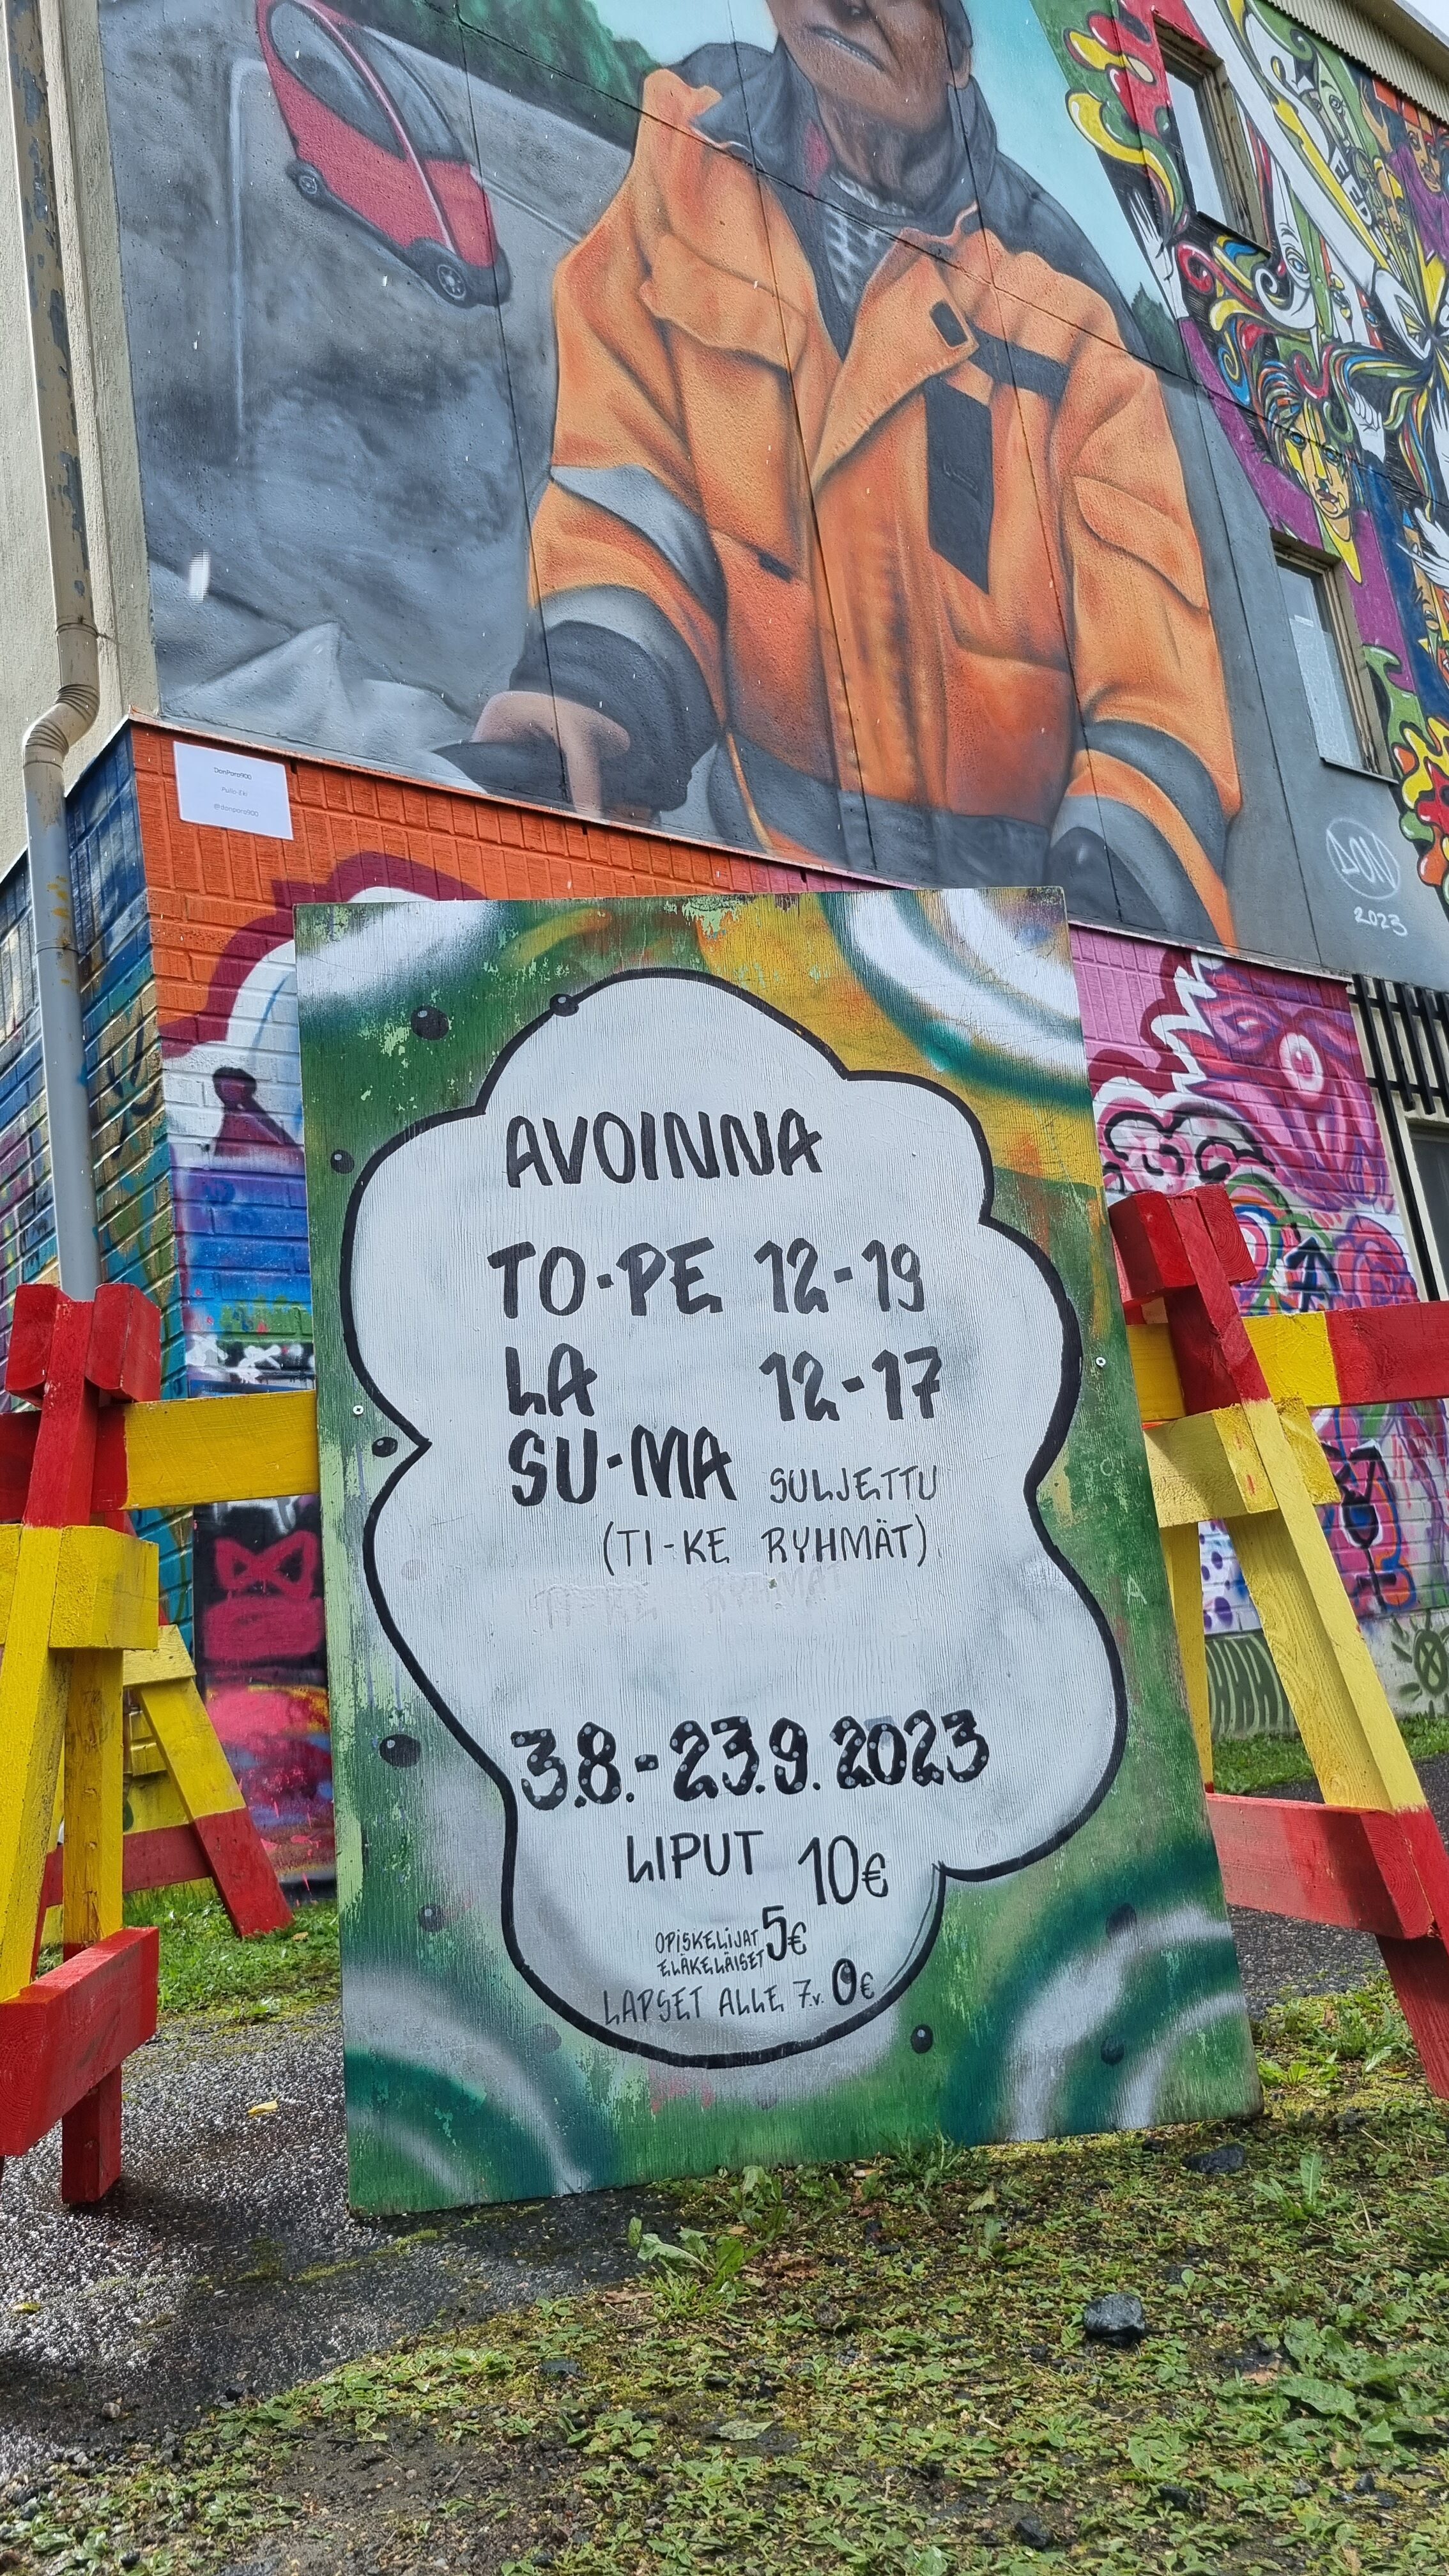 DonPora900
Pullo-Eki
@donpora900
DON
2023
AVOINNA
TO-PE 12-19
LA 12-17
SU-MA SULJETTU
(TI-KE RYHMÄT)
3.8.-23.9.2023
LIPUT 10€
OPISKELIJAT
ELÄKELÄISET 5€
LAPSET ALLE 7.v. 0€